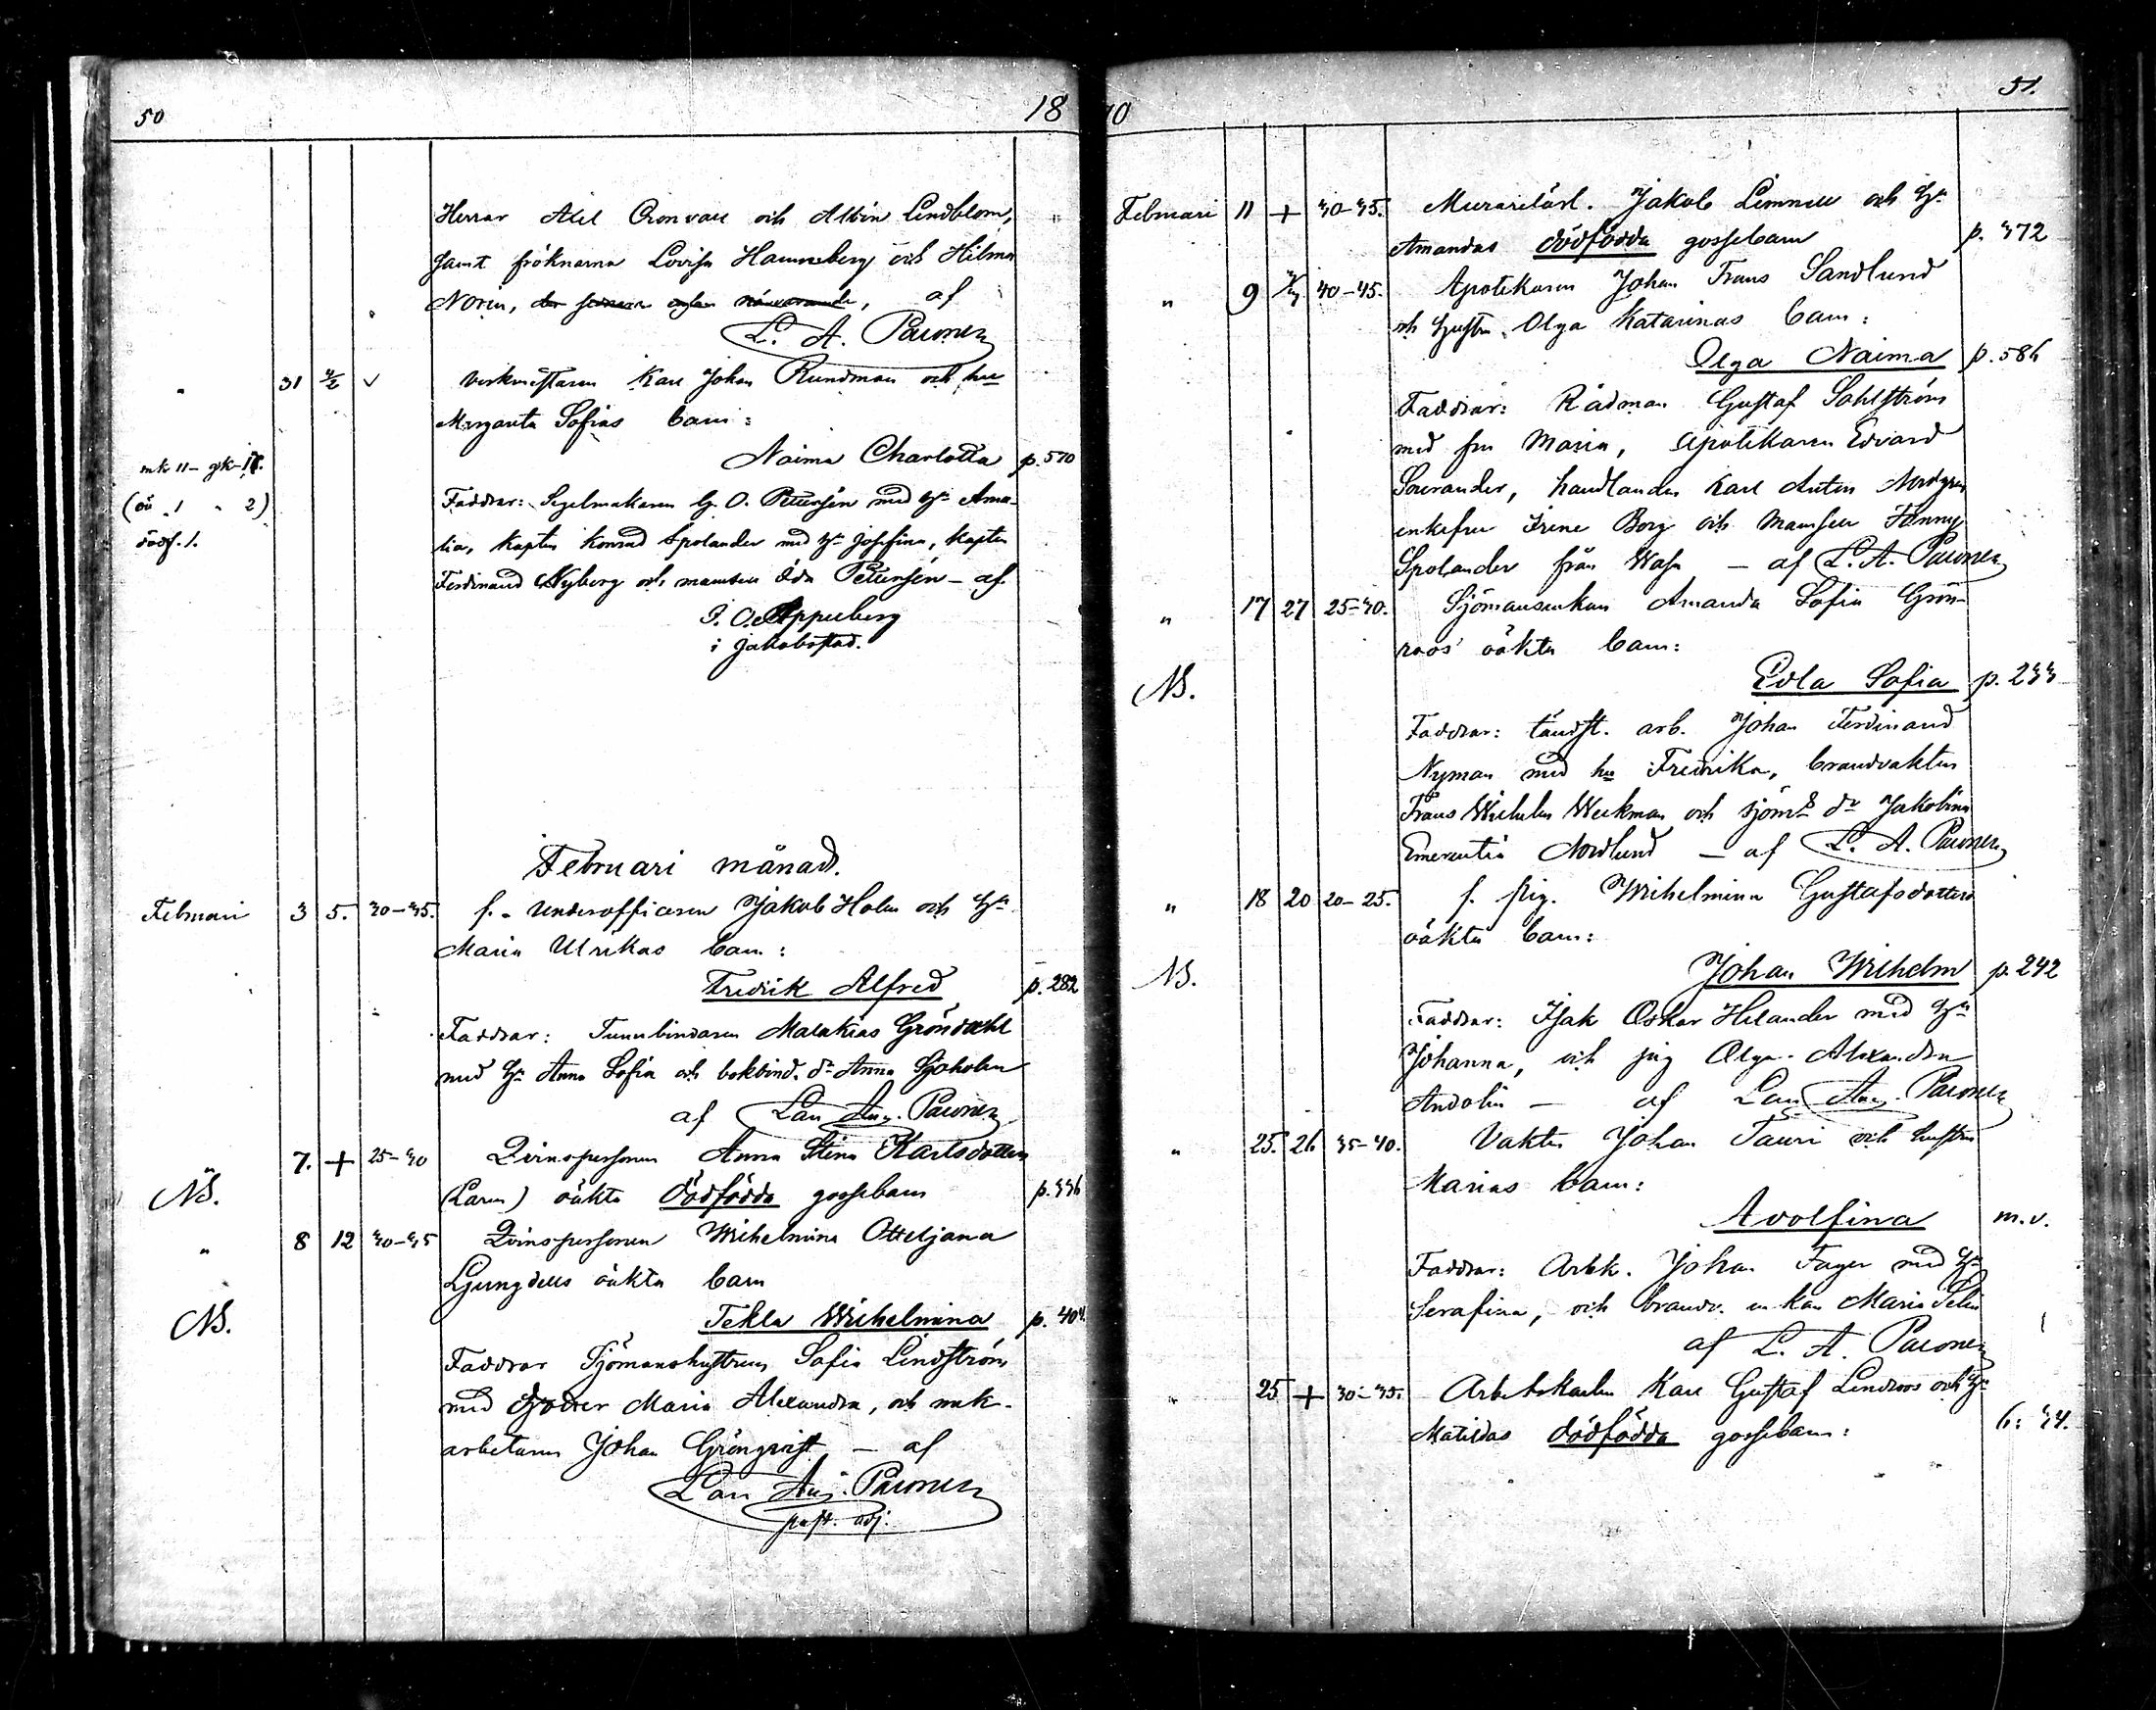 50
18
Herrar Axel Cronvall och Albin Lindblom,
samt fröknarna Lovisa Hammarberg och Hilma
Norin, af
L. A. Paconen
" 31 4/2 v Verkmästaren Karl Johan Rundman och hu
Margareta Sofias barn:
Naima Charlotta p. 570
mk 11 - qvk - 18.
(oä " 1 " 2)
dödf. 1.
Faddrar: Segelmakaren G. O. Petersén med hu Ama-
lia, kapten Konrad Spolander med hu Josefina, kapten
Ferdinand Nyberg och mamsell Ida Petersén - af
i Jakobstad.
Februari månad.
Februari 3 5. 30-35. f. Underofficeren Jakob Holm och hu
Maria Ulrikas barn:
Fredrik Alfred p. 282
Faddrar: Tunnbindaren Malakias Gröndahl
med hu Anna Sofia och bokbind. dr Anna Sjöholm
af Lars Aug. Paconen
7. + 25-30 Qvinspersonen Anna Stina Karlsdotters
NB. (Laren) oäkta dödfödda gossebarn p. 336
" 8 12 30-35 Qvinspersonen Wilhelmina Otteljana
Ljungdells oäkta barn
NB. Tekla Wilhelmina p. 404.
Faddrar Sjömanshustrun Sofia Lindström
med dotter Maria Alexandra, och mek.
arbetaren Johan Grönqvist - af
Lars Aug. Paconen
past. adj.
70
51.
Februari 11 + 30-35. Murarelärl. Jakob Limnell och hu
Amandas dödfödda gossebarn p. 372
" 9 40-45. Apotekaren Johan Frans Sandlund
och hustru Olga Katarinas barn:
Olga Naima p. 586
Faddrar: Rådman Gustaf Sahlström
med fru Maria, Apotekaren Edvard
Sourander, handlanden Karl Anton Nordgren
enkefru Irene Borg och Mamsell Fanny
Spolander från Wasa - af L. A. Paconen
" 17 27 25-30. Sjömansenkan Amanda Sofia Grön-
roos' oäkta barn:
NB. Edla Sofia p. 233
Faddrar: tändst. arb. Johan Ferdinand
Nyman med hu Fredrika, brandvakten
Frans Wilhelm Weckman och sjöms dr Jakobina
Emerentia Nordlund - af L. A. Paconen
" 18 20 20-25. f. pig. Wilhelmina Gustafsdotters
oäkta barn:
NB. Johan Wilhelm p. 242
Faddrar: Isak Oskar Helander med hu
Johanna, och pig Olga Alexandra
Andolin - af Lars Aug. Paconen
" 25. 26 35-40. Vakten Johan Tauri och hustru
Marias barn:
Adolfina m. v.
Faddrar: Arbk. Johan Fager med hu
Serafina, och brandv. enkan Maria Selin
af L. A. Paconen
" 25 + 30-35. Arbetskarlen Karl Gustaf Lindroos och hu
Matildas dödfödda gossebarn: b: 34.